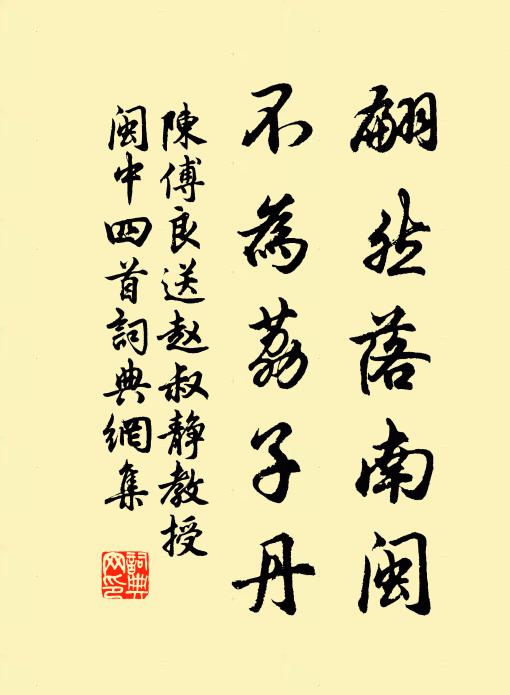 翩然落南閩
不為荔子丹
陳傅良送赵叔静教授
閩中四首詞典網集
詞典網印